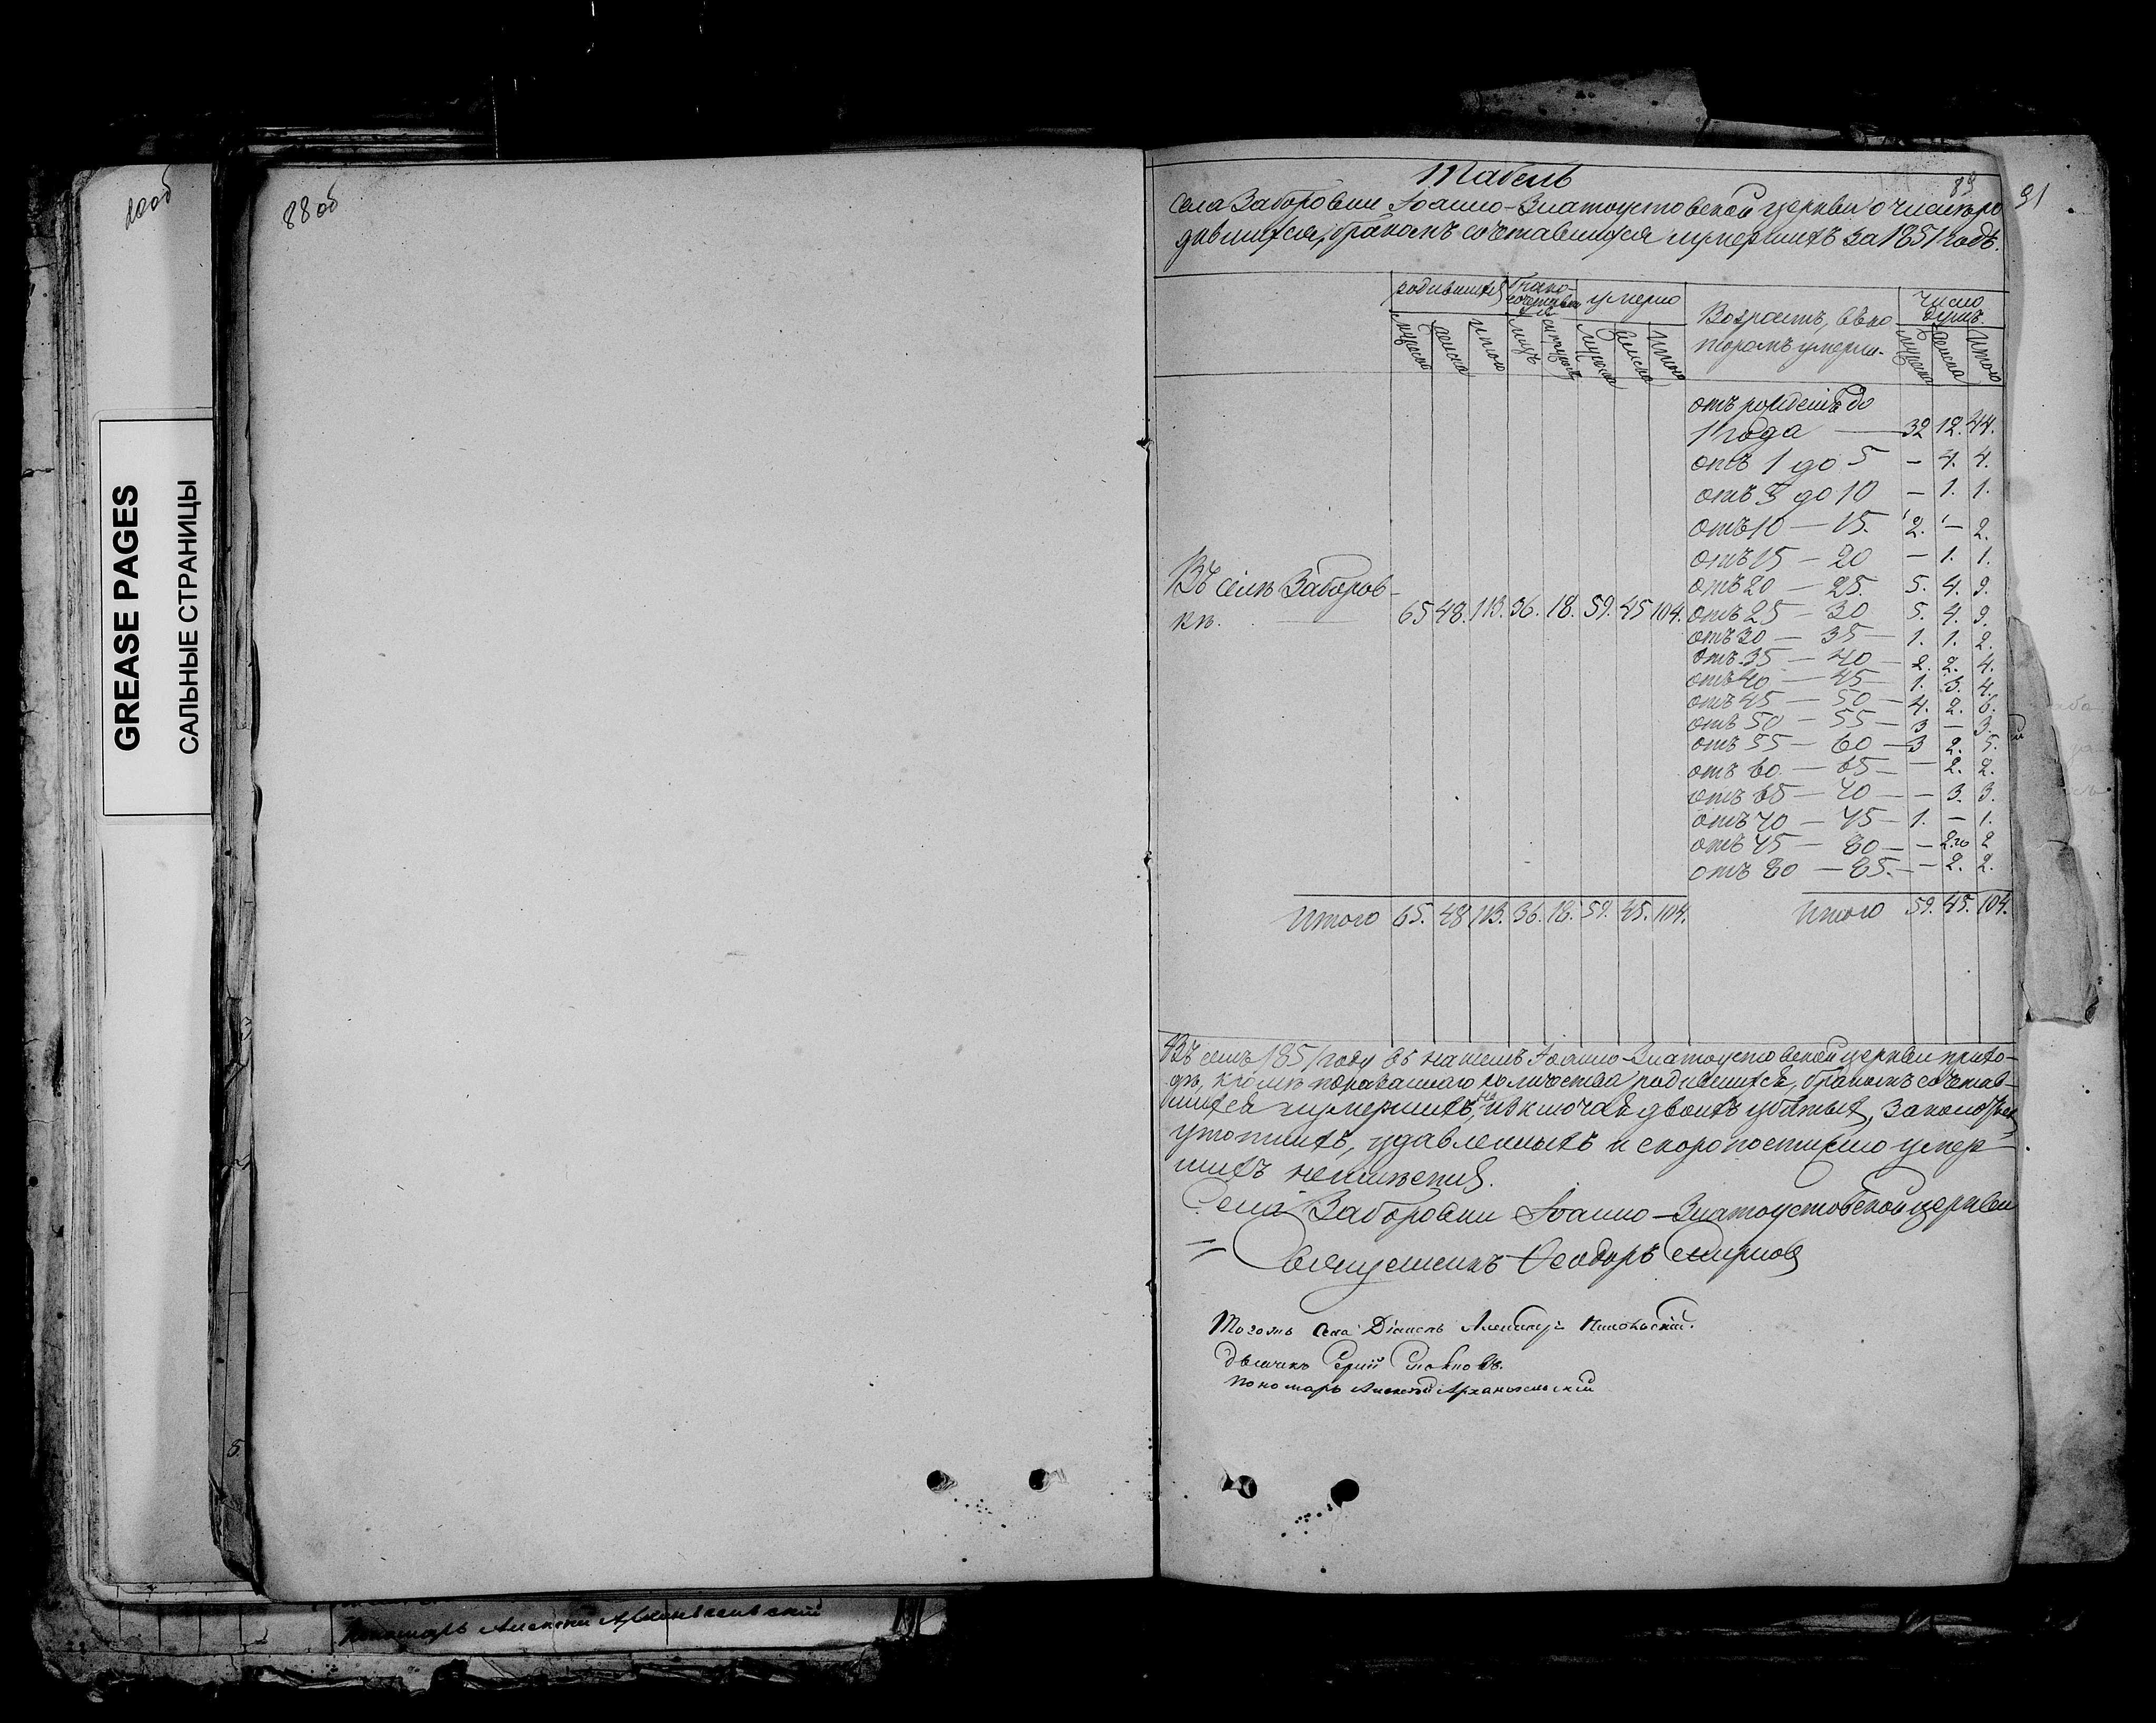 88 об
GREASE PAGES
САЛЬНЫЕ СТРАНИЦЫ
Табель
89
91
Села Заборовки Іоанно-Златоустовской церкви о числѣ ро
дившихся, бракомъ сочетавшихся и умершихъ за 1851 годъ.
родившихся
умерло
Возрастъ, въ ко
торомъ умерли.
Число
душъ.
мужеска женска итого мужеска женска итого мужеска женска итого
отъ рожденія до
1 года — 32 12. 44.
отъ 1 до 5 — 4. 4.
отъ 5 до 10 — 1. 1.
отъ 10 — 15. 2. — 2.
отъ 15 — 20 — 1. 1.
отъ 20 — 25. 5. 4. 9.
Въ селѣ Заборов-
кѣ. 65 48. 113. 36. 18. 59. 45 104.
отъ 25 — 30 5. 4. 9.
отъ 30 — 35 — 1. 1. 2.
отъ 35 — 40 — 2. 2. 4.
отъ 40 — 45 — 1. 3. 4.
отъ 45 — 50 — 4. 2. 6.
отъ 50 — 55 — 3 — 3.
отъ 55 — 60 — 3 2. 5.
отъ 60 — 65 — — 2. 2.
отъ 65 — 70 — — 3. 3.
отъ 70 — 75 — 1. — 1.
отъ 75 — 80 — — 2. 2
отъ 80 — 85. — — 2. 2.
Итого 65. 48 113. 36. 18. 59. 45. 104. Итого 59. 45. 104.
Въ семъ 1851 году въ нашемъ Іоанно-Златоустовской церкви прихо-
дѣ, кромѣ показаннаго количества родившихся, бракомъ сочетав-
шихся и умершихъ, не исключая двоихъ убитыхъ,
утопшихъ, удавленныхъ и скоропостижно умер-
шихъ неимѣется.
Села Заборовки Іоанно-Златоустовской церкви
Священникъ Ѳеодоръ Смирновъ
Тогожъ Села Діаконъ Никольскій.
дьячикъ
Пономарь Алексѣй Архангельскій
Пономарь Алексѣй Архангельскій